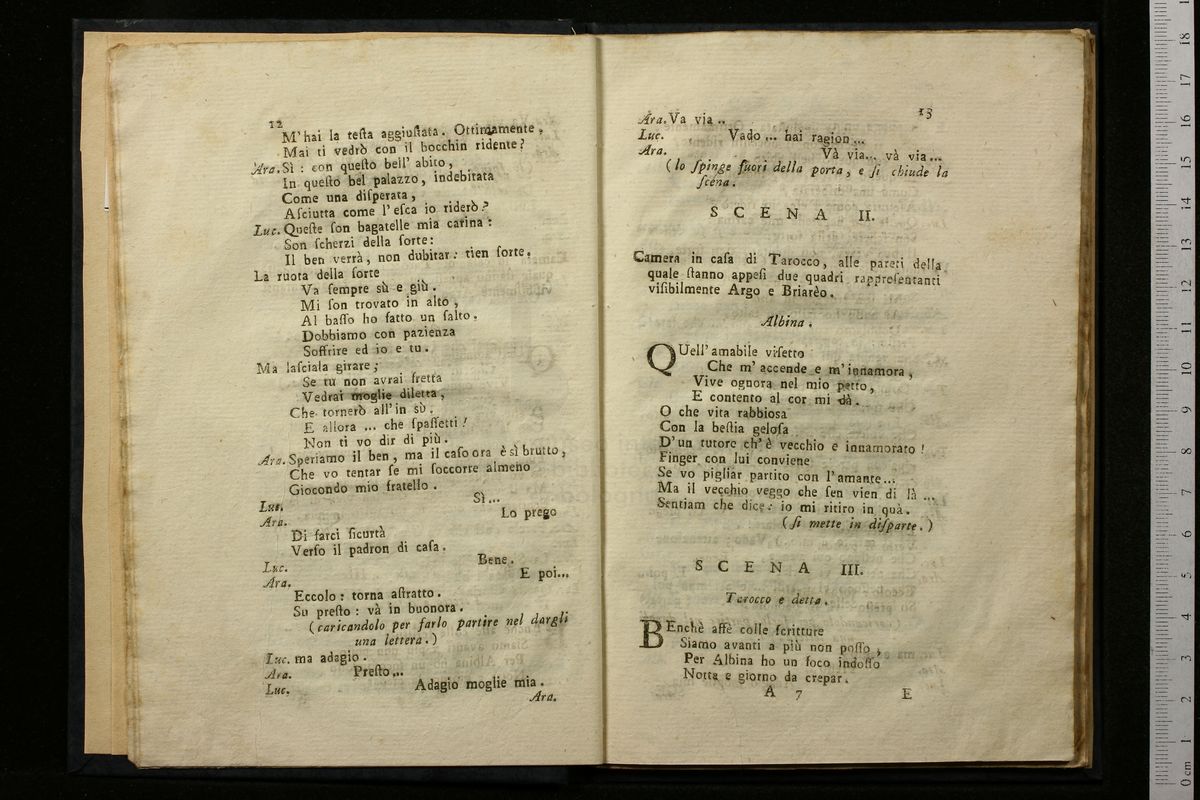 12
M'hai la teſta aggiuſtata. Ottimamente,
Mai ti vedrò con il bocchin ridente?
Ara. Sì: con queſto bell' abito,
In queſto bel palazzo, indebitata
Come una diſperata,
Aſciutta come l'eſca io riderò?
Luc. Queſte ſon bagatelle mia carina:
Son ſcherzi della ſorte:
Il ben verrà, non dubitar: tien forte.
La ruota della ſorte
Va ſempre sù e giù.
Mi ſon trovato in alto,
Al baſſo ho fatto un ſalto.
Dobbiamo con pazienza
Soffrire ed io e tu.
Ma laſciala girare;
Se tu non avrai fretta
Vedrai moglie diletta,
Che tornerò all'in sù.
E allora ... che ſpaſſetti!
Non ti vo dir di più.
Ara. Speriamo il ben, ma il caſo ora è sì brutto,
Che vo tentar ſe mi ſoccorre almeno
Giocondo mio fratello.
Luc. Sì...
Ara. Lo prego
Di farci ſicurtà
Verſo il padron di caſa.
Luc. Bene.
Ara. E poi...
Eccolo: torna aſtratto.
Su preſto: và in buonora.
(caricandolo per farlo partire nel dargli
una lettera.)
Luc. ma adagio.
Ara. Preſto...
Luc. Adagio moglie mia.
Ara.
13
Ara. Va via ..
Luc. Vado ... hai ragion ...
Ara. Và via... và via...
(lo ſpinge fuori della porta, e ſi chiude la
ſcena.
SCENA II.
Camera in caſa di Tarocco, alle pareti della
quale ſtanno appeſi due quadri rappreſentanti
viſibilmente Argo e Briarèo.
Albina.
QUell' amabile viſetto
Che m' accende e m' innamora,
Vive ognora nel mio petto,
E contento al cor mi dà.
O che vita rabbioſa
Con la beſtia geloſa
D'un tutore ch'è vecchio e innamorato!
Finger con lui conviene
Se vo pigliar partito con l'amante...
Ma il vecchio veggo che ſen vien di là ...
Sentiam che dice: io mi ritiro in quà.
(ſi mette in diſparte.)
SCENA III.
Tarocco e detta.
BEnchè affè colle ſcritture
Siamo avanti a più non poſſo,
Per Albina ho un foco indoſſo
Notte e giorno da crepar.
A 7 E
0 cm 1 2 3 4 5 6 7 8 9 10 11 12 13 14 15 16 17 18